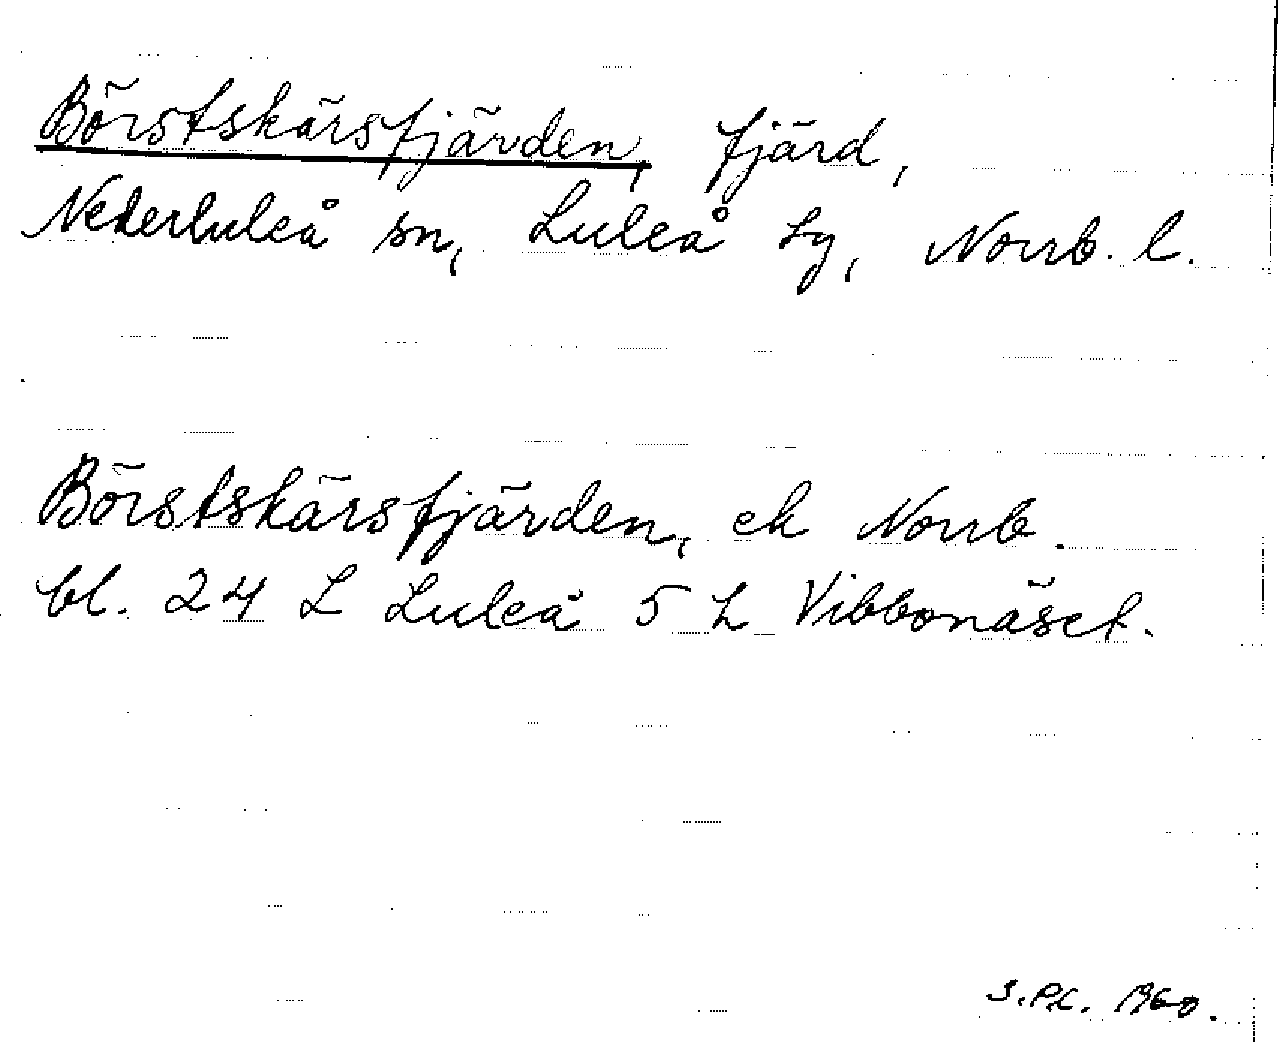 Börstskärsfjärden, fjärd,
Nederluleå sn, Luleå tg, Norrb. l.
Börstskärsfjärden, ek Norrb.
bl. 24 L Luleå 5 h Vibbonäset.
S.P.L. 1960.